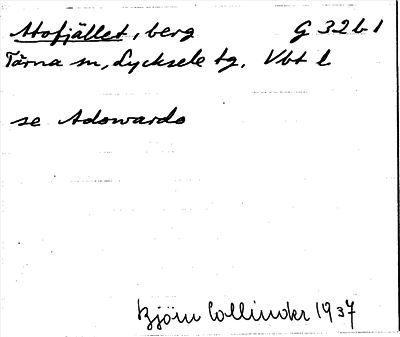 Atofjället, berg G 32 b 1
Tärna sn, Lycksele tg. Vbt l
se Adowardo
Björn Collinder 1937